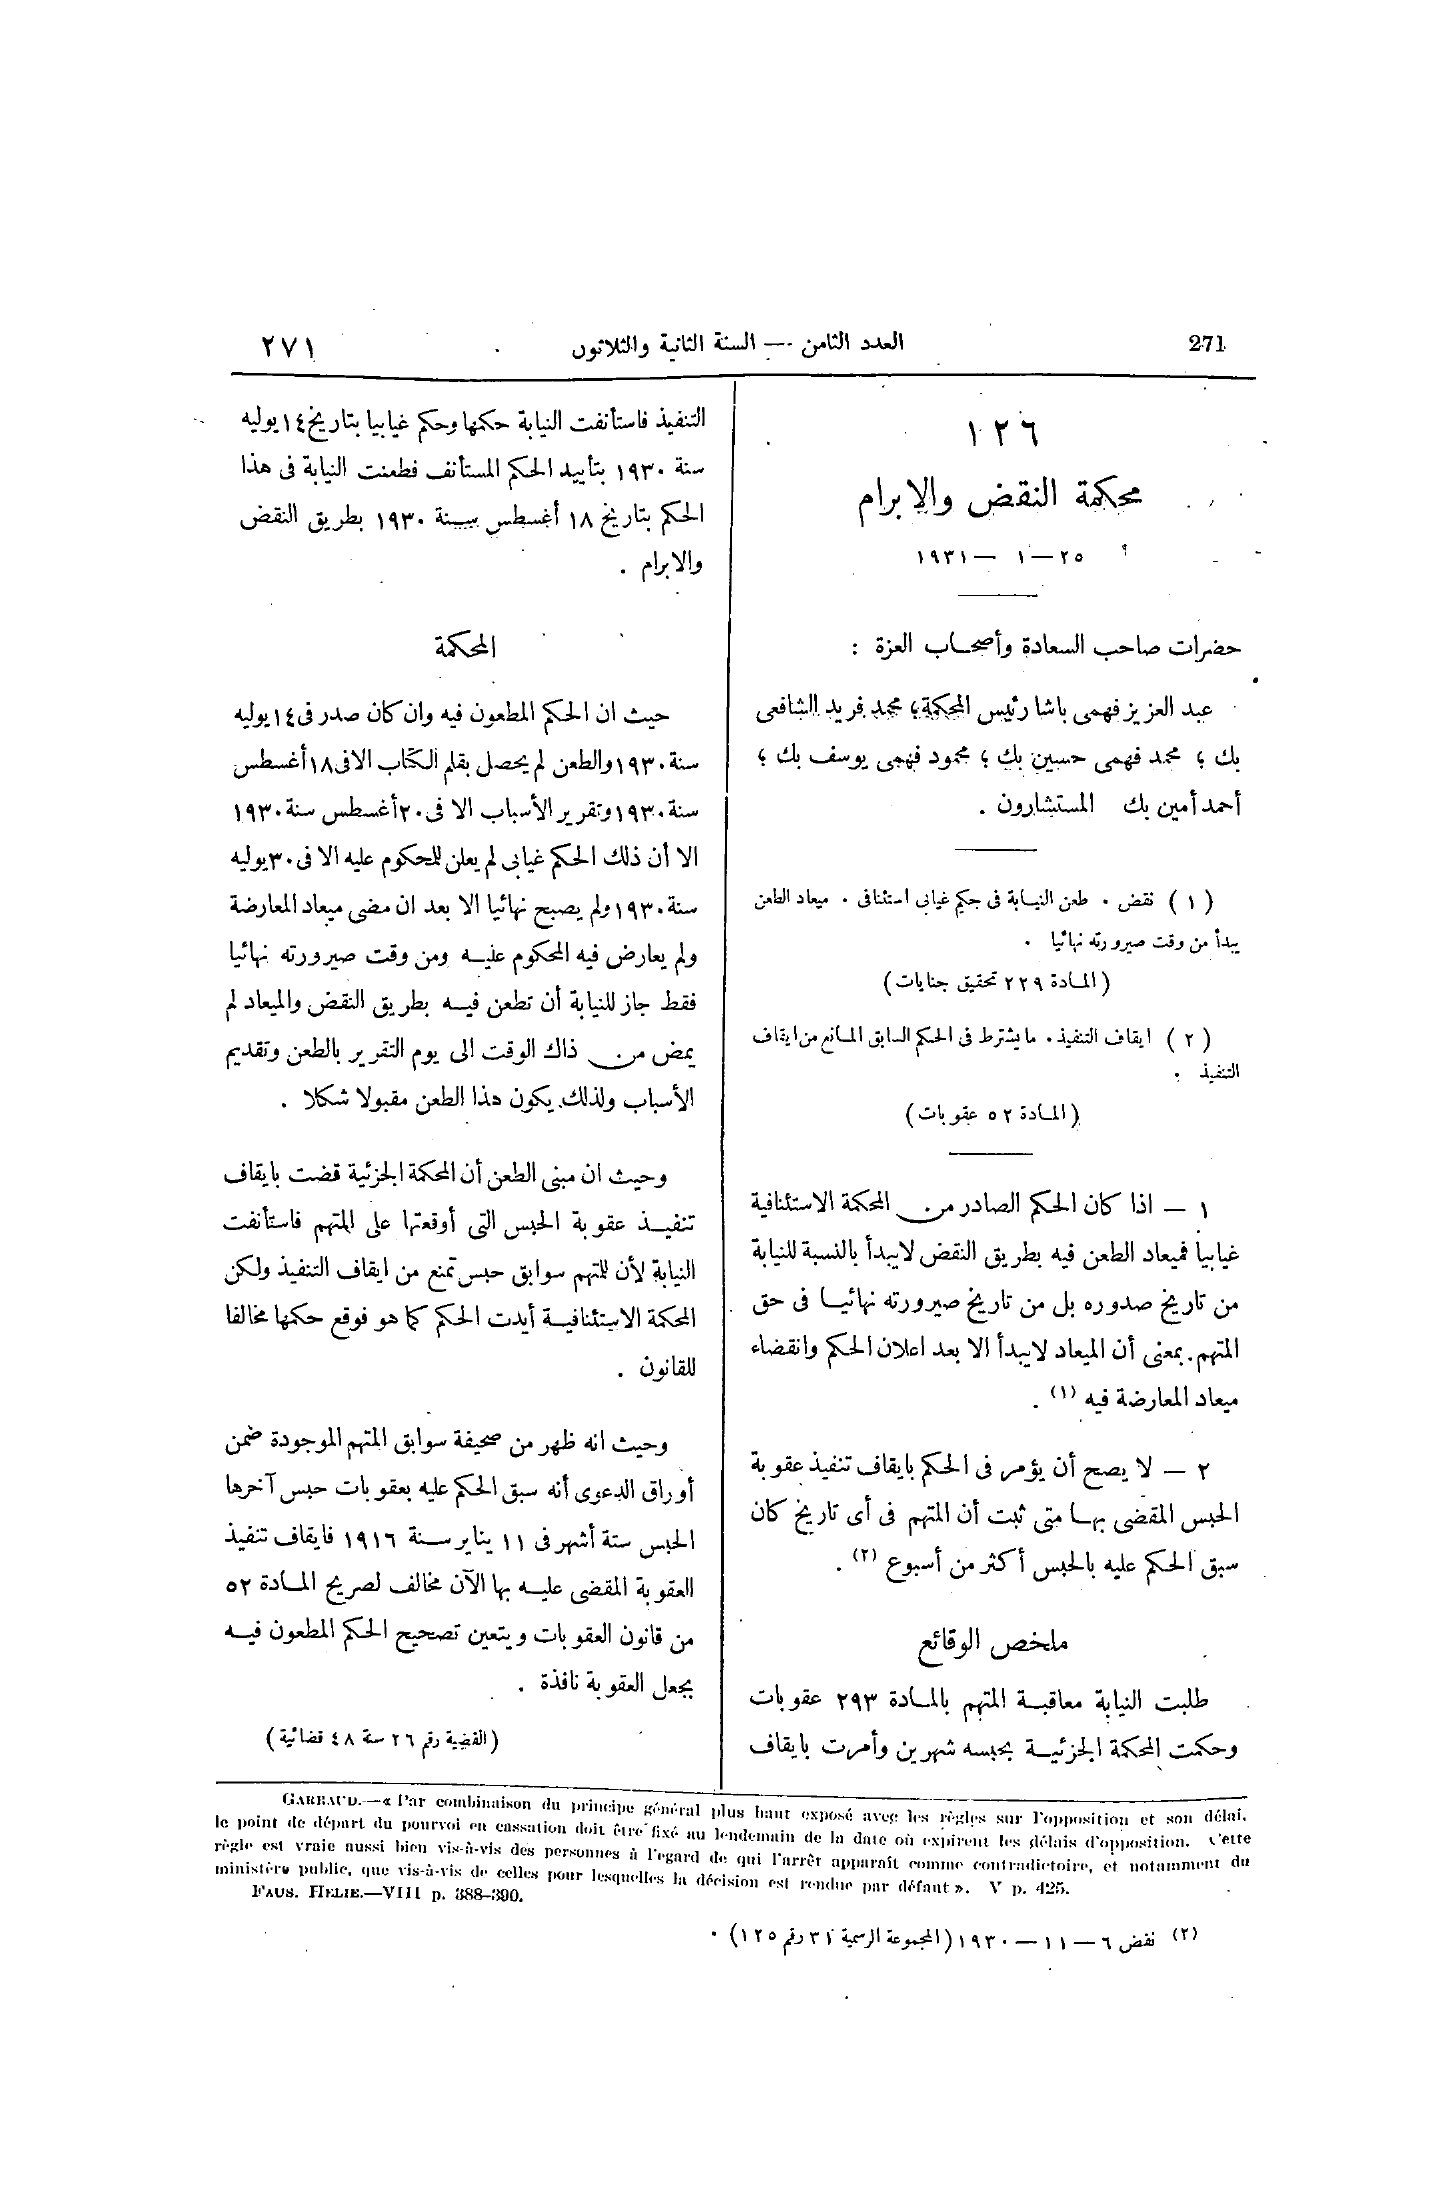 271
العدد الثامن — السنة الثانية والثلاثون
٢٧١
١٢٦
محكمة النقض والابرام
٢٥ — ١ — ١٩٣١
حضرات صاحب السعادة وأصحاب العزة :
عبد العزيز فهمى باشا رئيس المحكمة؛ محمد فريد الشافعى
بك ؛ محمد فهمى حسين بك ؛ محمود فهمى يوسف بك ؛
أحمد أمين بك المستشارون .
( ١ ) نقض . طعن النيابة فى حكم غيابى استئنافى . ميعاد الطعن
يبدأ من وقت صيرورته نهائيا .
(المادة ٢٢٩ تحقيق جنايات)
( ٢ ) ايقاف التنفيذ . ما يشترط فى الحكم السابق المانع من ايقاف
التنفيذ .
(المادة ٥٢ عقوبات)
١ — اذا كان الحكم الصادر من المحكمة الاستئنافية
غيابيا فميعاد الطعن فيه بطريق النقض لايبدأ بالنسبة للنيابة
من تاريخ صدوره بل من تاريخ صيرورته نهائيا فى حق
المتهم. بمعنى أن الميعاد لايبدأ الا بعد اعلان الحكم وانقضاء
ميعاد المعارضة فيه (١) .
٢ — لا يصح أن يؤمر فى الحكم بايقاف تنفيذ عقوبة
الحبس المقضى بها متى ثبت أن المتهم فى أى تاريخ كان
سبق الحكم عليه بالحبس أكثر من أسبوع (٢) .
ملخص الوقائع
طلبت النيابة معاقبة المتهم بالمادة ٢٩٣ عقوبات
وحكمت المحكمة الجزئية بحبسه شهرين وأمرت بايقاف
التنفيذ فاستأنفت النيابة حكمها وحكم غيابيا بتاريخ ١٤ يوليه
سنة ١٩٣٠ بتأييد الحكم المستأنف فطعنت النيابة فى هذا
الحكم بتاريخ ١٨ أغسطس سنة ١٩٣٠ بطريق النقض
والابرام .
المحكمة
حيث ان الحكم المطعون فيه وان كان صدر فى ١٤ يوليه
سنة ١٩٣٠ والطعن لم يحصل بقلم الكتاب الا فى ١٨ أغسطس
سنة ١٩٣٠ وتقرير الأسباب الا فى ٢٠ أغسطس سنة ١٩٣٠
الا أن ذلك الحكم غيابى لم يعلن للمحكوم عليه الا فى ٣٠ يوليه
سنة ١٩٣٠ ولم يصبح نهائيا الا بعد ان مضى ميعاد المعارضة
ولم يعارض فيه المحكوم عليه ومن وقت صيرورته نهائيا
فقط جاز للنيابة أن تطعن فيه بطريق النقض والميعاد لم
يمض من ذاك الوقت الى يوم التقرير بالطعن وتقديم
الأسباب ولذلك يكون هذا الطعن مقبولا شكلا .
وحيث ان مبنى الطعن أن المحكمة الجزئية قضت بايقاف
تنفيذ عقوبة الحبس التى أوقعتها على المتهم فاستأنفت
النيابة لأن للمتهم سوابق حبس تمنع من ايقاف التنفيذ ولكن
المحكمة الاستئنافية أيدت الحكم كما هو فوقع حكمها مخالفا
للقانون .
وحيث انه ظهر من صحيفة سوابق المتهم الموجودة ضمن
أوراق الدعوى أنه سبق الحكم عليه بعقوبات حبس آخرها
الحبس ستة أشهر فى ١١ يناير سنة ١٩١٦ فايقاف تنفيذ
العقوبة المقضى عليه بها الآن مخالف لصريح المادة ٥٢
من قانون العقوبات ويتعين تصحيح الحكم المطعون فيه
بجعل العقوبة نافذة .
(القضية رقم ٢٦ سنة ٤٨ قضائية)
GARRAUD.—« Par combinaison du principe général plus haut exposé avec les règles sur l'opposition et son délai,
le point de départ du pourvoi en cassation doit être fixé au lendemain de la date où expirent les délais d'opposition. Cette
règle est vraie aussi bien vis-à-vis des personnes à l'égard de qui l'arrêt apparaît comme contradictoire, et notamment du
ministère public, que vis-à-vis de celles pour lesquelles la décision est rendue par défaut ». V p. 425.
FAUS. HELIE.—VIII p. 388-390.
(٢) نقض ٦ — ١١ — ١٩٣٠ (المجموعة الرسمية ٣١ رقم ١٢٥) .